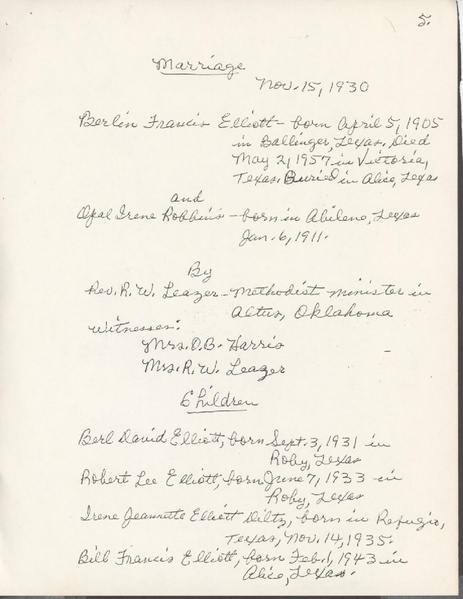 5.
Marriage
Nov. 15, 1930
Berlin Francis Elliott - born April 5, 1905
in Ballinger, Texas. Died
May 2, 1957 in Victoria,
Texas. Buried in Alice, Texas
and
Opal Irene Robbins - born in Abilene, Texas
Jan. 6, 1911.
By
Rev. R. W. Leazer - Methodist minister in
Altus, Oklahoma
Witnesses:
Mrs. O. B. Harris
Mrs. R. W. Leazer
Children
Berl David Elliott, born Sept. 3, 1931 in
Roby, Texas
Robert Lee Elliott, born June 7, 1933 in
Roby, Texas
Irene Jeannette Elliott Diltz, born in Refugio,
Texas, Nov. 14, 1935.
Bill Francis Elliott, born Feb. 1, 1943 in
Alice, Texas.